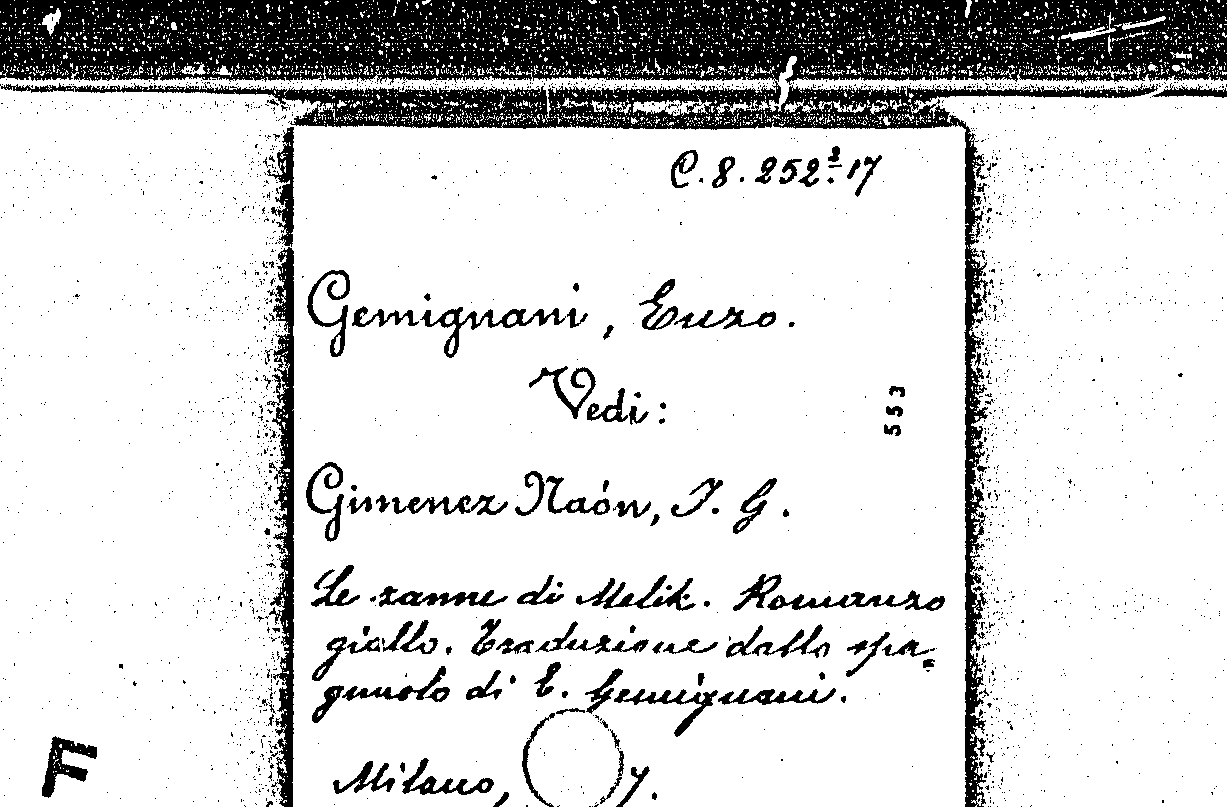 C. 8. 252². 17
Gemignani, Enzo.
Vedi:
553
Gimenez Naón, J. G.
Le zanne di Melik. Romanzo
giallo. Traduzione dallo spa=
gnuolo di E. Gemignani.
Milano, 7.
F